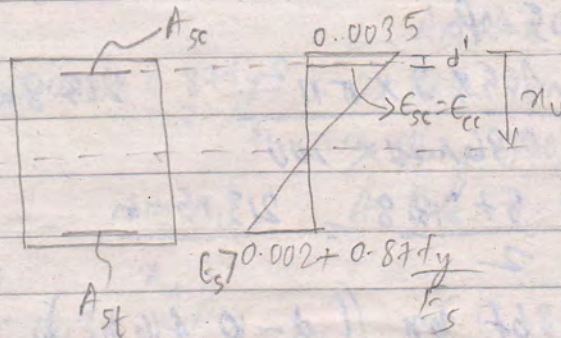 A_sc
0.0035
d'
ϵ_sc = ϵ_cc
x_u
A_st
ϵ_s > 0.002 + 0.87 f_y / E_s